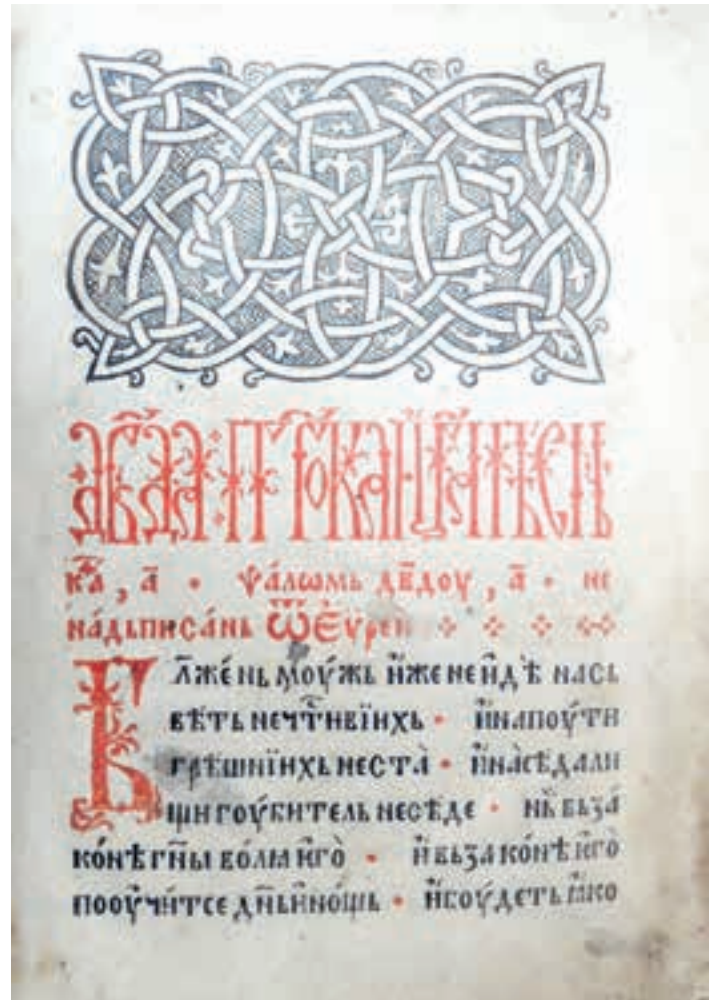 дв҃да прⷪ҇ка и цр҃ѧ пѣсн
каⷴ҇, а҃ · ѱа́лѡмь дв҃доу , а҃ · не
на́дьписа́нь ѿ еѵреи
Бл҃же́нь моу́жь и҆же не и҆дѣ̀ нась
вѣ́ть нечⷭ҇тивїихь · и҆ на поу́ти
грѣ́шнїихь не ста̀ · и҆ на̀ сѣда́ли
щи гоуби́тель не сѣ́де · нь̀ вь за
ко́нѣ гн҃ы во́лꙗ и҆го̀ · и҆ вь зако́нѣ и҆го̀
пооучи́тсе дн҃ь и҆ но́щь · и҆ боу́деть ꙗ҆ко